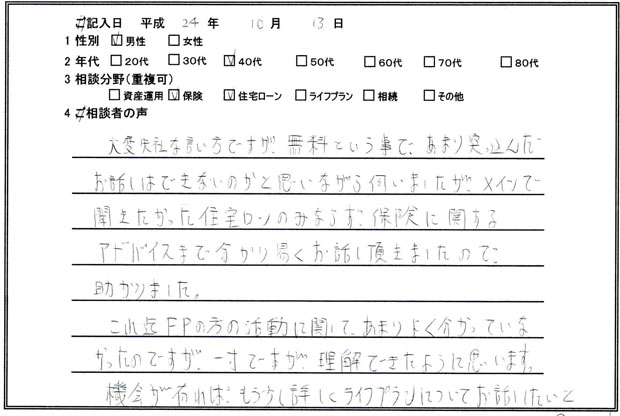 ご記入日 平成 24 年 10 月 13 日
1 性別 ☑男性 □女性
2 年代 □20代 □30代 ☑40代 □50代 □60代 □70代 □80代
3 相談分野(重複可)
□資産運用 ☑保険 ☑住宅ローン □ライフプラン □相続 □その他
4 ご相談者の声
大変失礼な言い方ですが、無料という事で、あまり突っ込んだ
お話しはできないのかと思いながら伺いましたが、メインで
聞きたかった住宅ローンのみならず、保険に関する
アドバイスまで分かり易くお話し頂きましたので、
助かりました。
これ迄FPの方の活動に関して、あまりよく分かっていな
かったのですが、一寸ですが、理解できたように思います。
機会が有れば、もう少し詳しくライフプランについてお話したいと